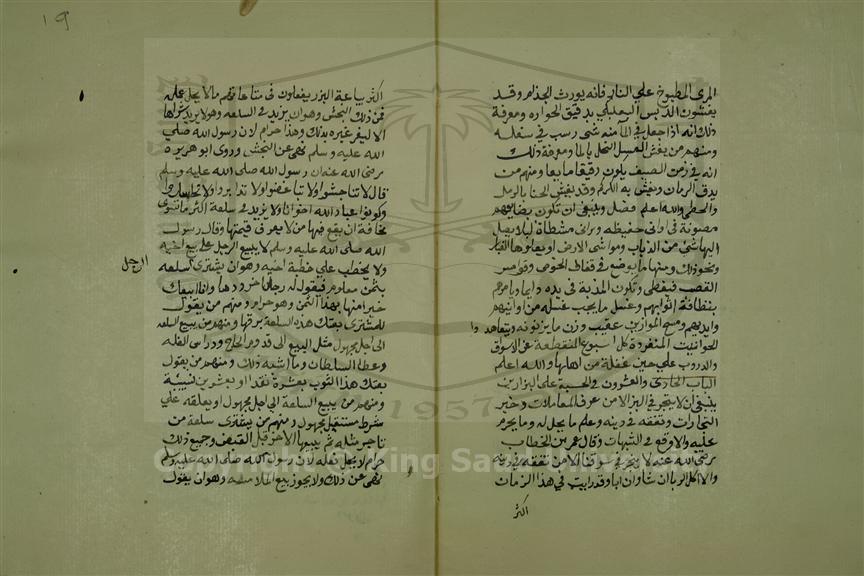 المرى المطبوخ على النار فانه يورث الجذام وقد
يغشون الدبس البعلبكي بدقيق الحواره ومعرفة
ذلك انه اذا جعل في الما منه شى رسب في سفله
ومنهم من يغش العسل النحل بالما ومعرفة ذلك
انه في زمن الصيف يكون رقيقا مايعا ومنهم من
يدق الرمان ويغش به الكركم وقد يغش الحنا بالرمل
والخطمى والله اعلم فصل وينبغى ان تكون بضايعهم
مصونة في اوانى حفيظه وبرانى مشطاة ليلا يصل
اليها شى من الذباب ومواشى الارض او يعلوها الغبار
ونحو ذلك ومنها ما يوضع في قفاف الخوص وقوامس
القصب فيغطى وتكون المذبة في يده دايما ويامرهم
بنظافة اثوابهم وغسل ما يجب غسله من اوانيهم
وايديهم ومسح الموازين عقيب وزن ما يزنونه ويتعاهد
الحوانيت المنفردة كل اسبوع المنقطعة عن الاسواق
والدروب على حين غفلة من اهلها والله اعلم
الباب الحادى والعشرون والحسبة على البزازين
ينبغى ان لا يتجر في البز الا من عرف المعاملات وخبر
التجارات وتفقه في دينه وعلم ما يحل له وما يحرم
عليه والا وقع في الشبهات وقال عمر بن الخطاب
رضى الله عنه لا يتجر في سوقنا الا من تفقه في دينه
والا اكل الربا ان شا وان ابا وقد رايت في هذا الزمان
اكثر
19
اكثر بياعة البز يفعلون في متاجرتهم ما لا يحل عمله
فمن ذلك النجش وهو ان يزيد في السلعه وهو لا يريد شراها
الا ليغر غيره بذلك وهذا حرام لان رسول الله صلى
الله عليه وسلم نهى عن النجش وروى ابو هريرة
رضى الله عنه ان رسول الله صلى الله عليه وسلم
قال لا تناجشوا ولا تباغضوا ولا تدابروا ولا تحاسدوا
وكونوا عباد الله اخوانا ولا يزيد في سلعة اكثر ما تسوى
مخافة ان يقع فيها من لا يعرف قيمتها وقال رسول
الله صلى الله عليه وسلم لا يبيع الرجل على بيع اخيه
ولا يخطب على خطبة اخيه وهو ان يشترى سلعه
الرجل
بثمن معلوم فيقول له رجل اخر ردها وانا ابيعك
خير منها بهذا الثمن وهو حرام ومنهم من يقول
للمشترى بعتك هذه السلعة برقها ومنهم من يبيع السلعه
الى اجل مجهول مثل البيع الى قدوم الحاج ودراس الغله
وعطا السلطان وما اشبه ذلك ومنهم من يقول
بعتك هذا الثوب بعشرة نقدا او بعشرين نسيئة
ومنهم من يبيع السلعة الى اجل مجهول او يعلقه على
شرط مستقبل مجهول ومنهم من يشترى سلعة من
تاجر مثله ثم يبيعها الاخر قبل القبض وجميع ذلك
حرام لا يحل فعله لان رسول الله صلى الله عليه وسلم
نهى عن ذلك ولا يجوز بيع الملامسه وهو ان يقول
1957
Copyright © King Saud University